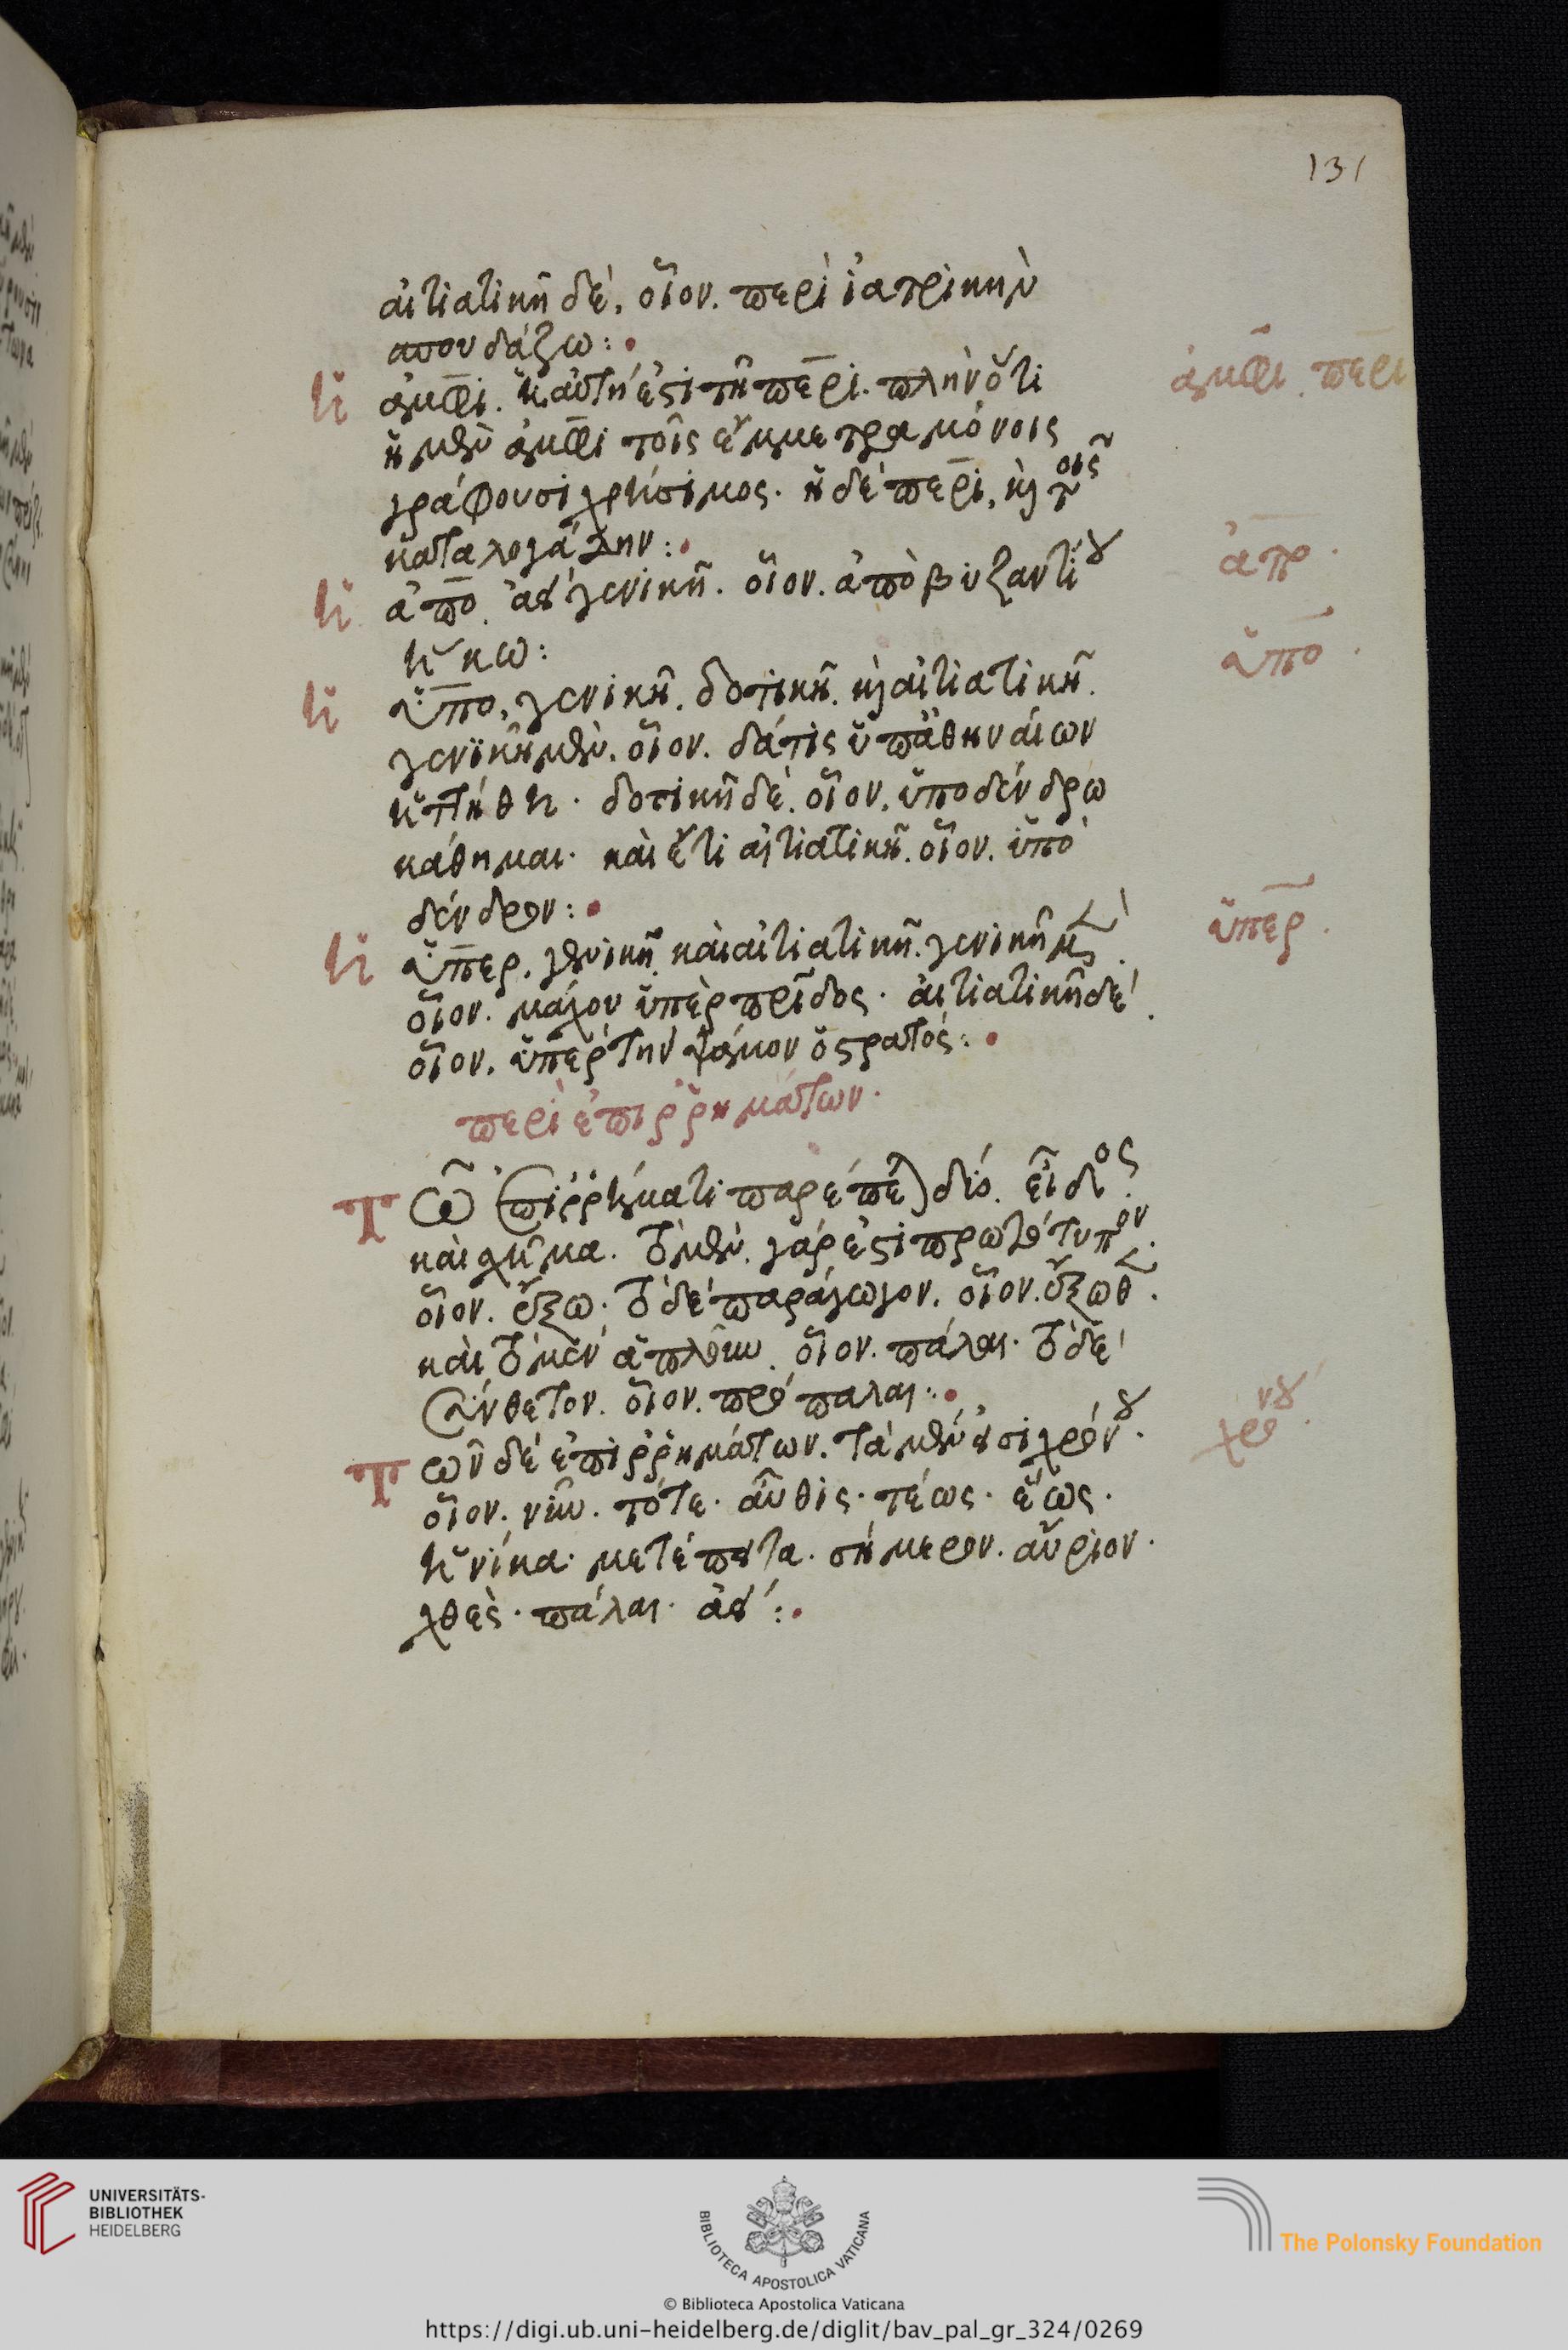 131
αἰτιατικῆ δέ, οἷον. περὶ ἰατρικὴν
σπουδάζω:
Ἡ ἀμφι. ἡ αὐτή ἐστι τῆ περι. πλὴν ὅτι
ἡ μὲν ἀμφι τοῖς ἔμμετρα μόνοις
γράφουσι χρήσιμος. ἡ δὲ περι, κὶ τοῖς
καταλογάδην:
Ἡ ἀπο. ἀεὶ γενικῆ. οἷον. ἀπὸ βυζαντίου
ἥκω:
Ἡ ὑπο, γενικῆ. δοτικῆ. κὶ αἰτιατικῆ.
γενικῆ μὲν. οἷον. δάτις ὑπ' ἀθηναίων
ἡττήθη. δοτικῆ δὲ. οἷον. ὑπο δένδρω
κάθημαι. καὶ ἔτι αἰτιατικῆ. οἷον. ὑπὸ
δένδρον:
Ἡ ὑπερ. γενικῆ καὶ αἰτιατικῆ. γενικῆ μὲν.
οἷον. μάχου ὑπὲρ πρίδος. αἰτιατικῆ δέ.
οἷον. ὑπὲρ τὴν ψάμον ὁ στρατός:
περὶ ἐπιρρημάτων.
Τῶ ἐπιρρήματι παρέπεται δύο. εἶδος.
καὶ σχῆμα. τὸ μὲν γάρ ἐστι πρωτότυπον.
οἷον. ἔξω. τὸ δὲ παράγωγον. οἷον. ἔξωθεν.
καὶ τὸ μὲν ἁπλοῦν. οἷον. πάλαι. τὸ δὲ
σύνθετον. οἷον. πρόπαλαι:
Τῶν δὲ ἐπιρρημάτων. τὰ μὲν εἰσὶ χρόνου.
οἷον. νῦν. τότε. αὖθις. τέως. ἕως.
ἡνίκα. μετέπειτα. σήμερον. αὔριον.
χθὲς. πάλαι. ἀεί:
ἀμφι. περι
ἀπο.
ὑπο.
ὑπερ.
χρόνου.
UNIVERSITÄTS-
BIBLIOTHEK
HEIDELBERG
BIBLIOTECA APOSTOLICA VATICANA
The Polonsky Foundation
© Biblioteca Apostolica Vaticana
https://digi.ub.uni-heidelberg.de/diglit/bav_pal_gr_324/0269